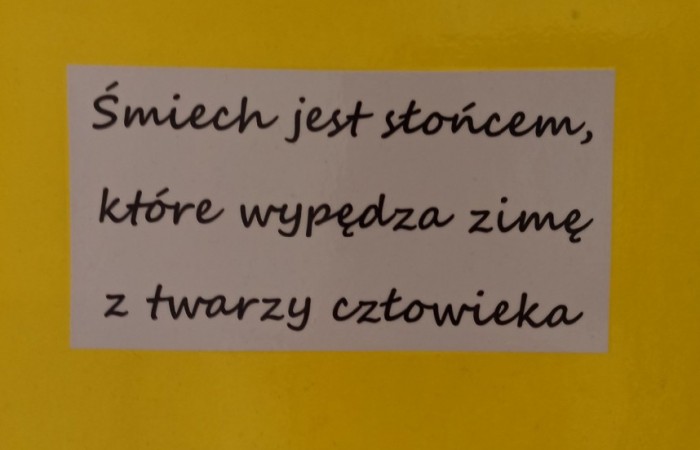 Śmiech jest słońcem,
które wypędza zimę
z twarzy człowieka